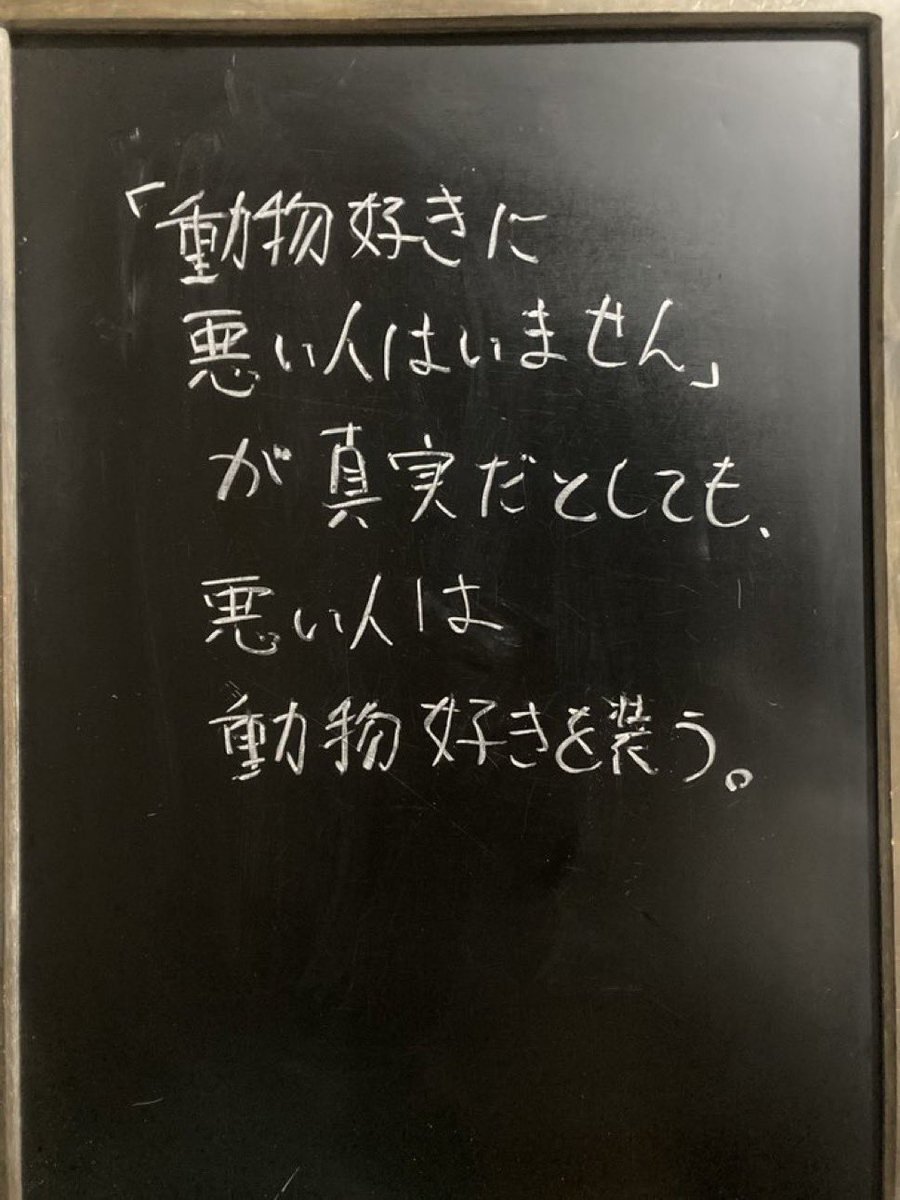 「動物好きに
悪い人はいません」
が真実だとしても、
悪い人は
動物好きを装う。